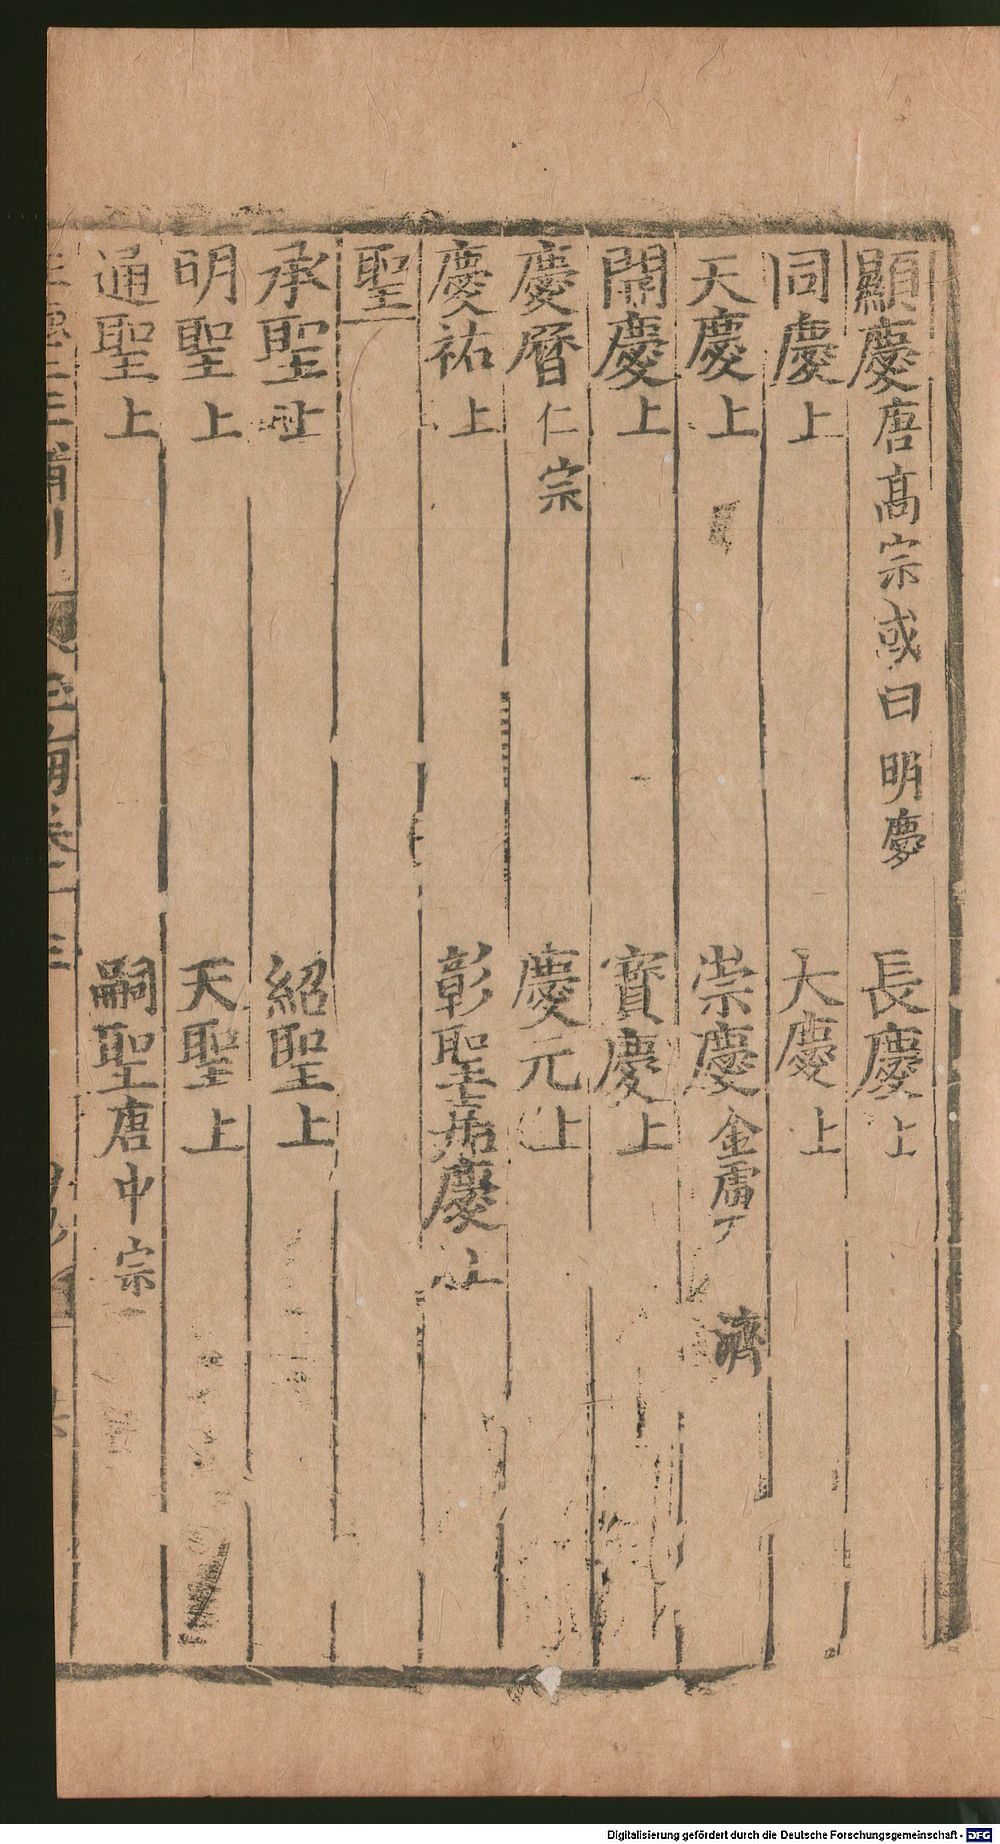 顯慶唐高宗或曰明慶 長慶上
同慶上 大慶上
天慶上 崇慶金 濟
開慶上 寳慶上
慶曆仁宗 慶元上
慶祐上 彰聖 慶上
聖
承聖上 紹聖上
明聖上 天聖上
通聖上 嗣聖唐中宗
Digitalisierung gefördert durch die Deutsche Forschungsgemeinschaft - DFG